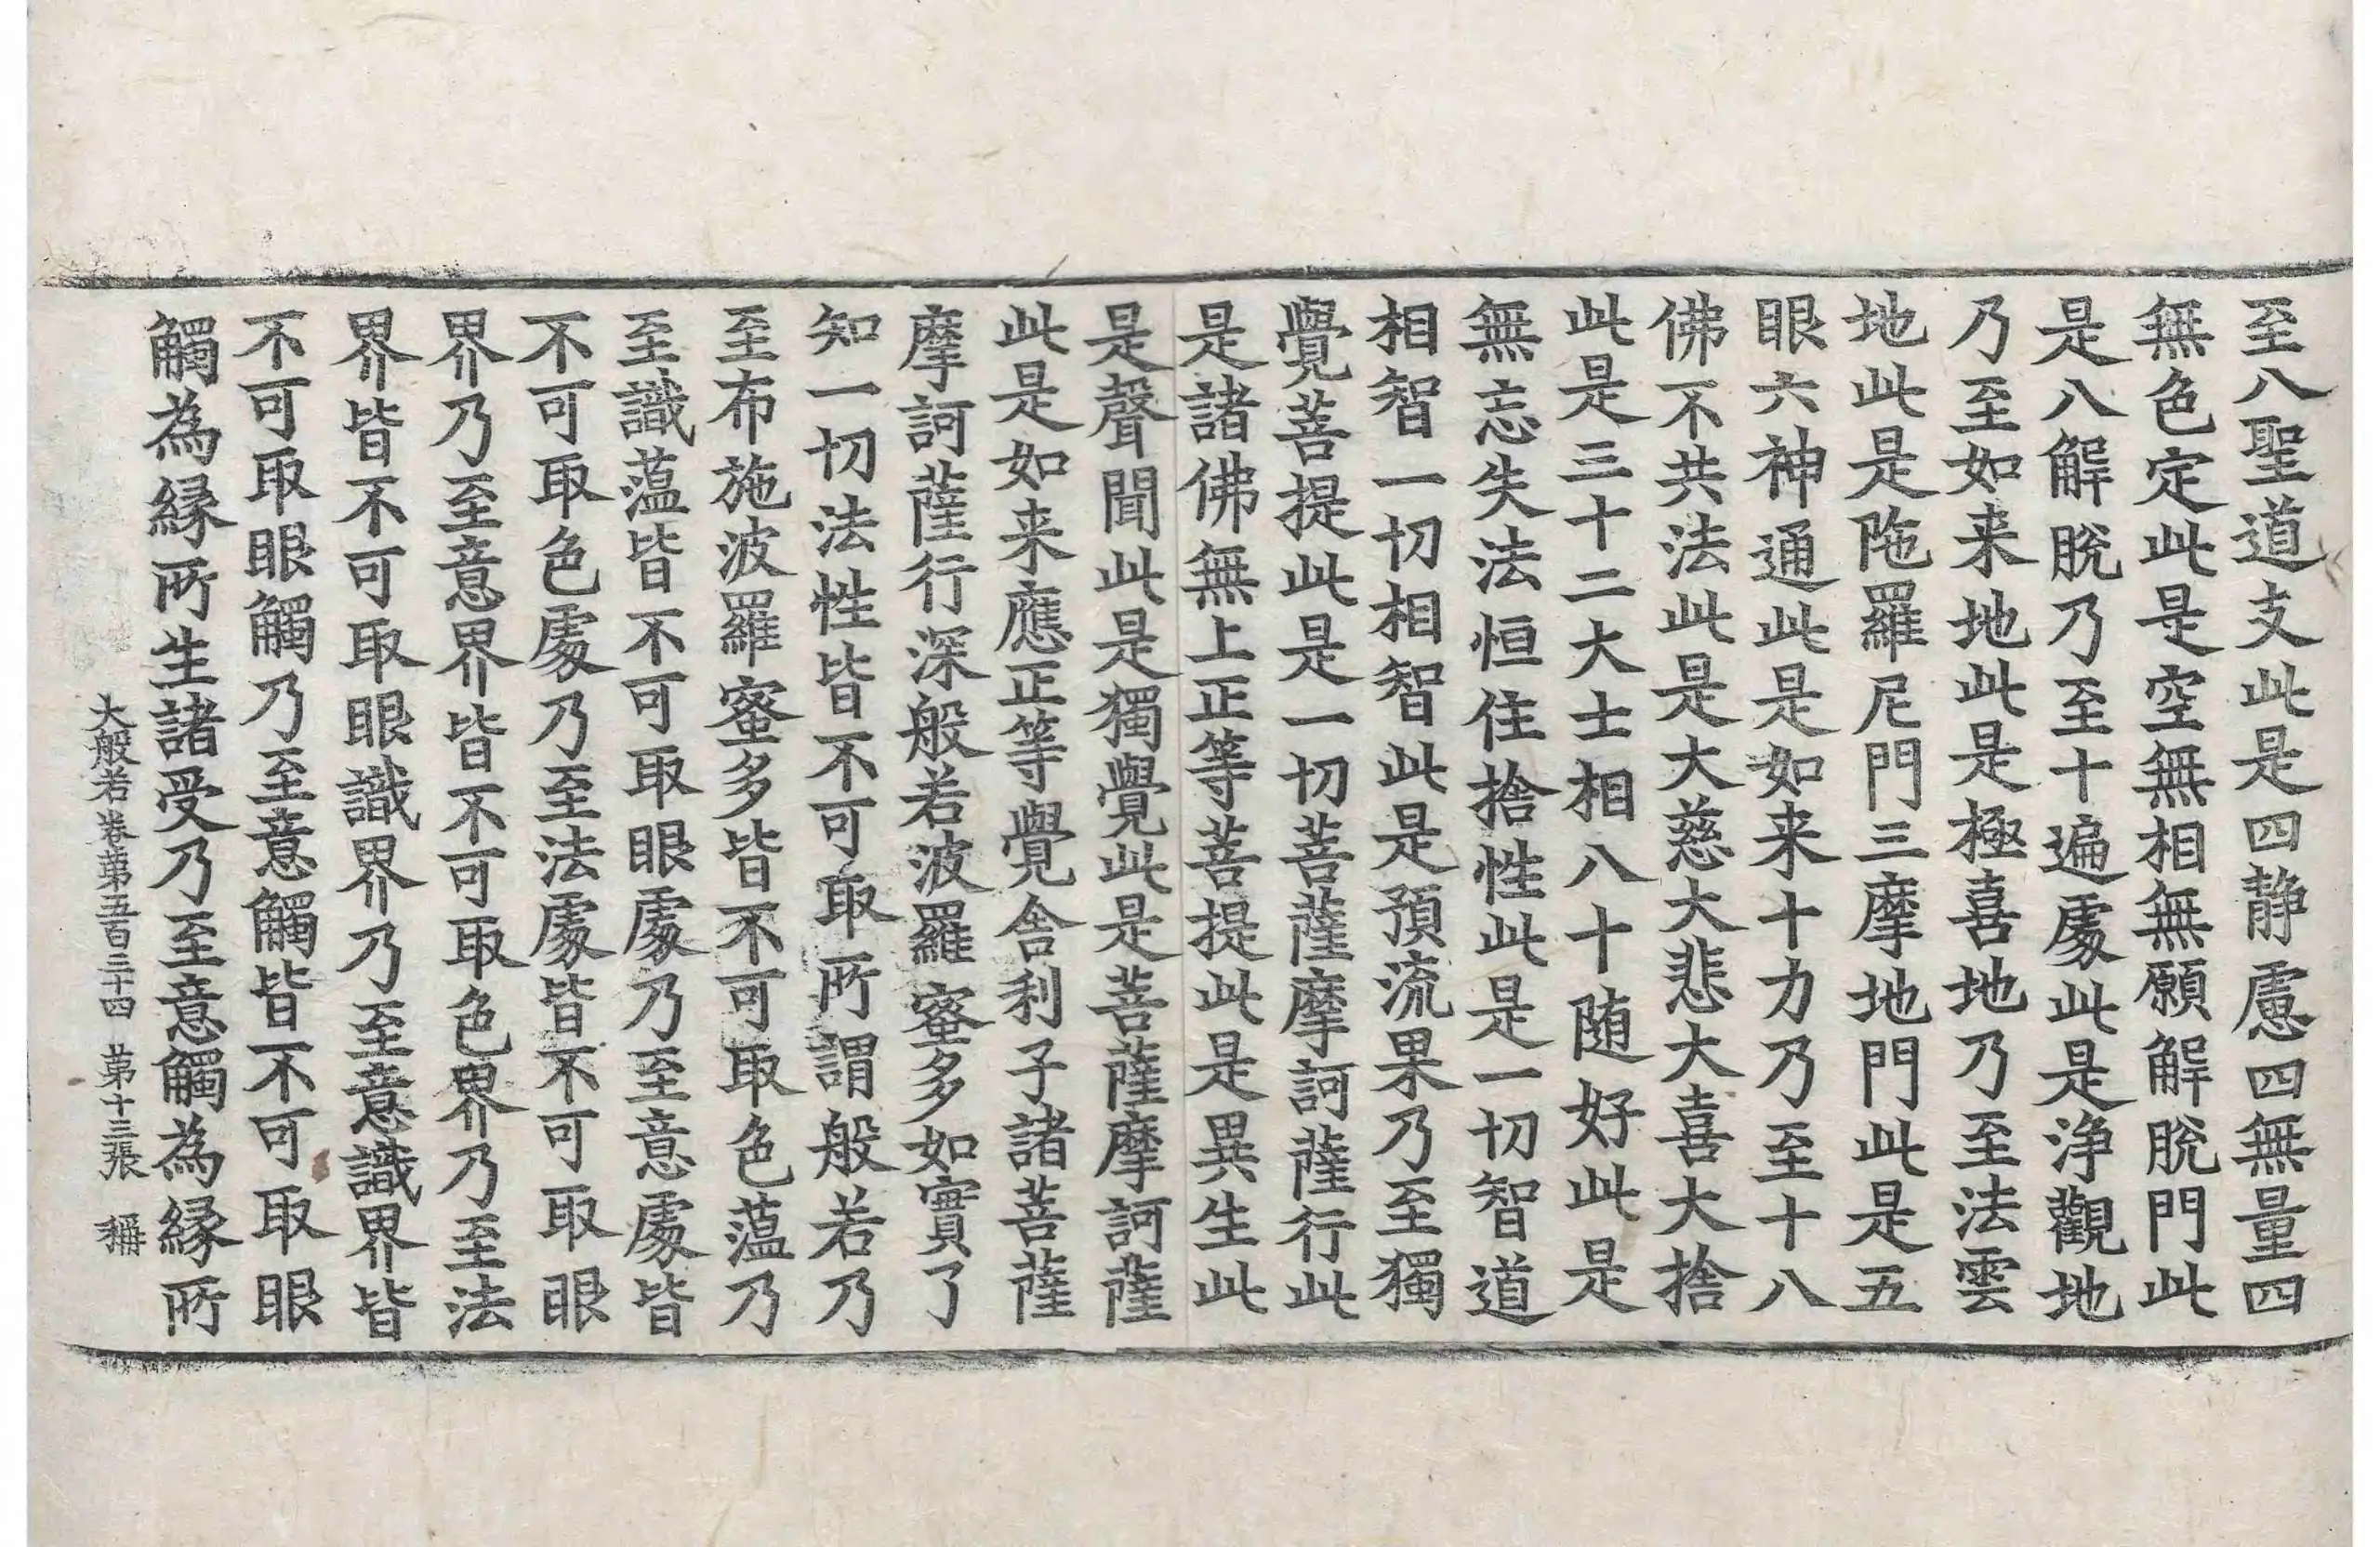 至八聖道支此是四静慮四無量四
無色定此是空無相無願解脫門此
是八解脫乃至十遍處此是淨觀地
乃至如来地此是極喜地乃至法雲
地此是陁羅尼門三摩地門此是五
眼六神通此是如来十力乃至十八
佛不共法此是大慈大悲大喜大捨
此是三十二大士相八十随好此是
無忘失法恒住捨性此是一切智道
相智一切相智此是預流果乃至獨
覺菩提此是一切菩薩摩訶薩行此
是諸佛無上正等菩提此是異生此
是聲聞此是獨覺此是菩薩摩訶薩
此是如来應正等覺舍利子諸菩薩
摩訶薩行深般若波羅蜜多如實了
知一切法性皆不可取所謂般若乃
至布施波羅蜜多皆不可取色蕰乃
至識蕰皆不可取眼處乃至意處皆
不可取色處乃至法處皆不可取眼
界乃至意界皆不可取色界乃至法
界皆不可取眼識界乃至意識界皆
不可取眼觸乃至意觸皆不可取眼
觸為縁所生諸受乃至意觸為縁所
大般若卷第五百三十四 第十三張 稱